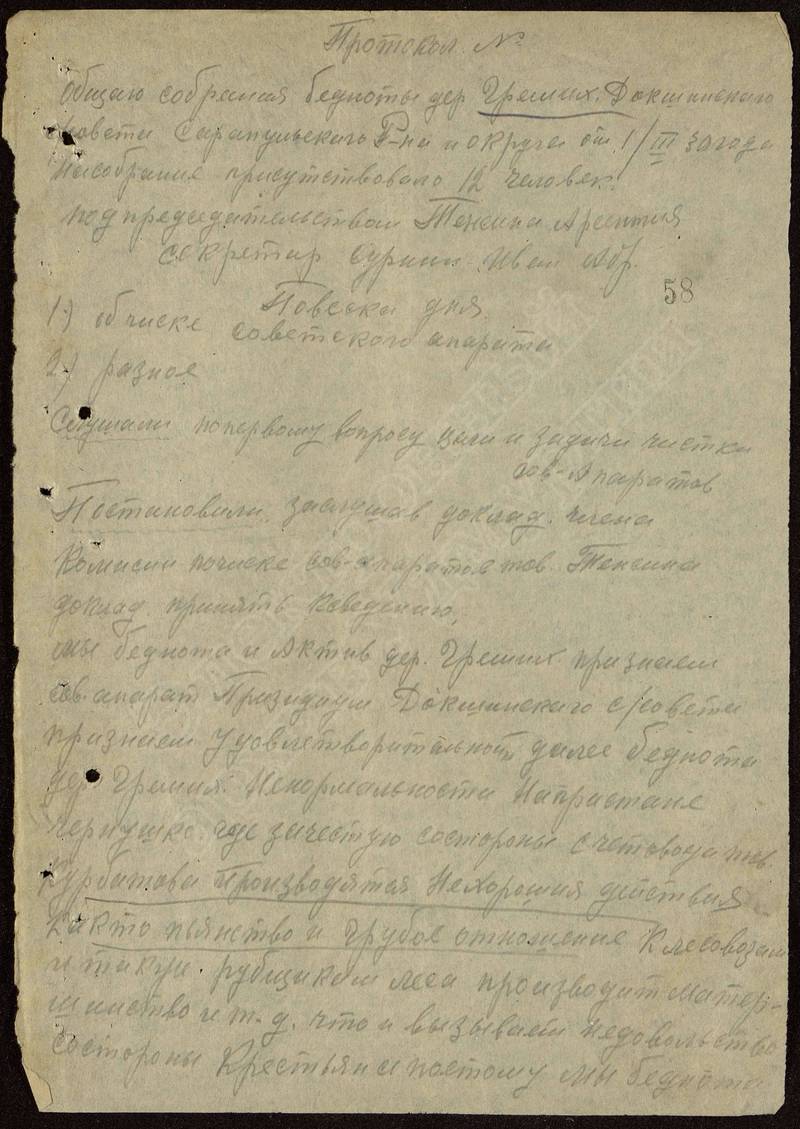 Протокол №
Общаго собрания бедноты дер Гремих. Докшинского
совета Сарапульского Р-на и округа от 1/III 30 года
На собрание присутствовало 12 человек.
под председательством Тенсина Арсентия
секретар Сурнин Иван Абр.
58
Повеска дня
1.) об чиске советского апарата
2.) разное
Слушали по первому вопросу цели и задачи чистки
сов-Апаратов
Постановили заслушав доклад члена
Комисии по чиске сов-апаратов тов. Тенсина
доклад принять к сведению,
мы беднота и Актив дер. Гремих признаем
сов.апарат Призидиум Докшинского с/совета
признаем удовлетворительной далее беднота
дер. Гремих. Ненормальности На пристане
чернушке где зачестую состороны счетовода тов.
Курбатова производятся Нехорошия действия
как то пьянство и грубое отношение К лесовозам
и также рубщикам леса производит матер-
шинство и т.д. что и вызывает недовольство
состороны Крестьян и поетому мы беднота